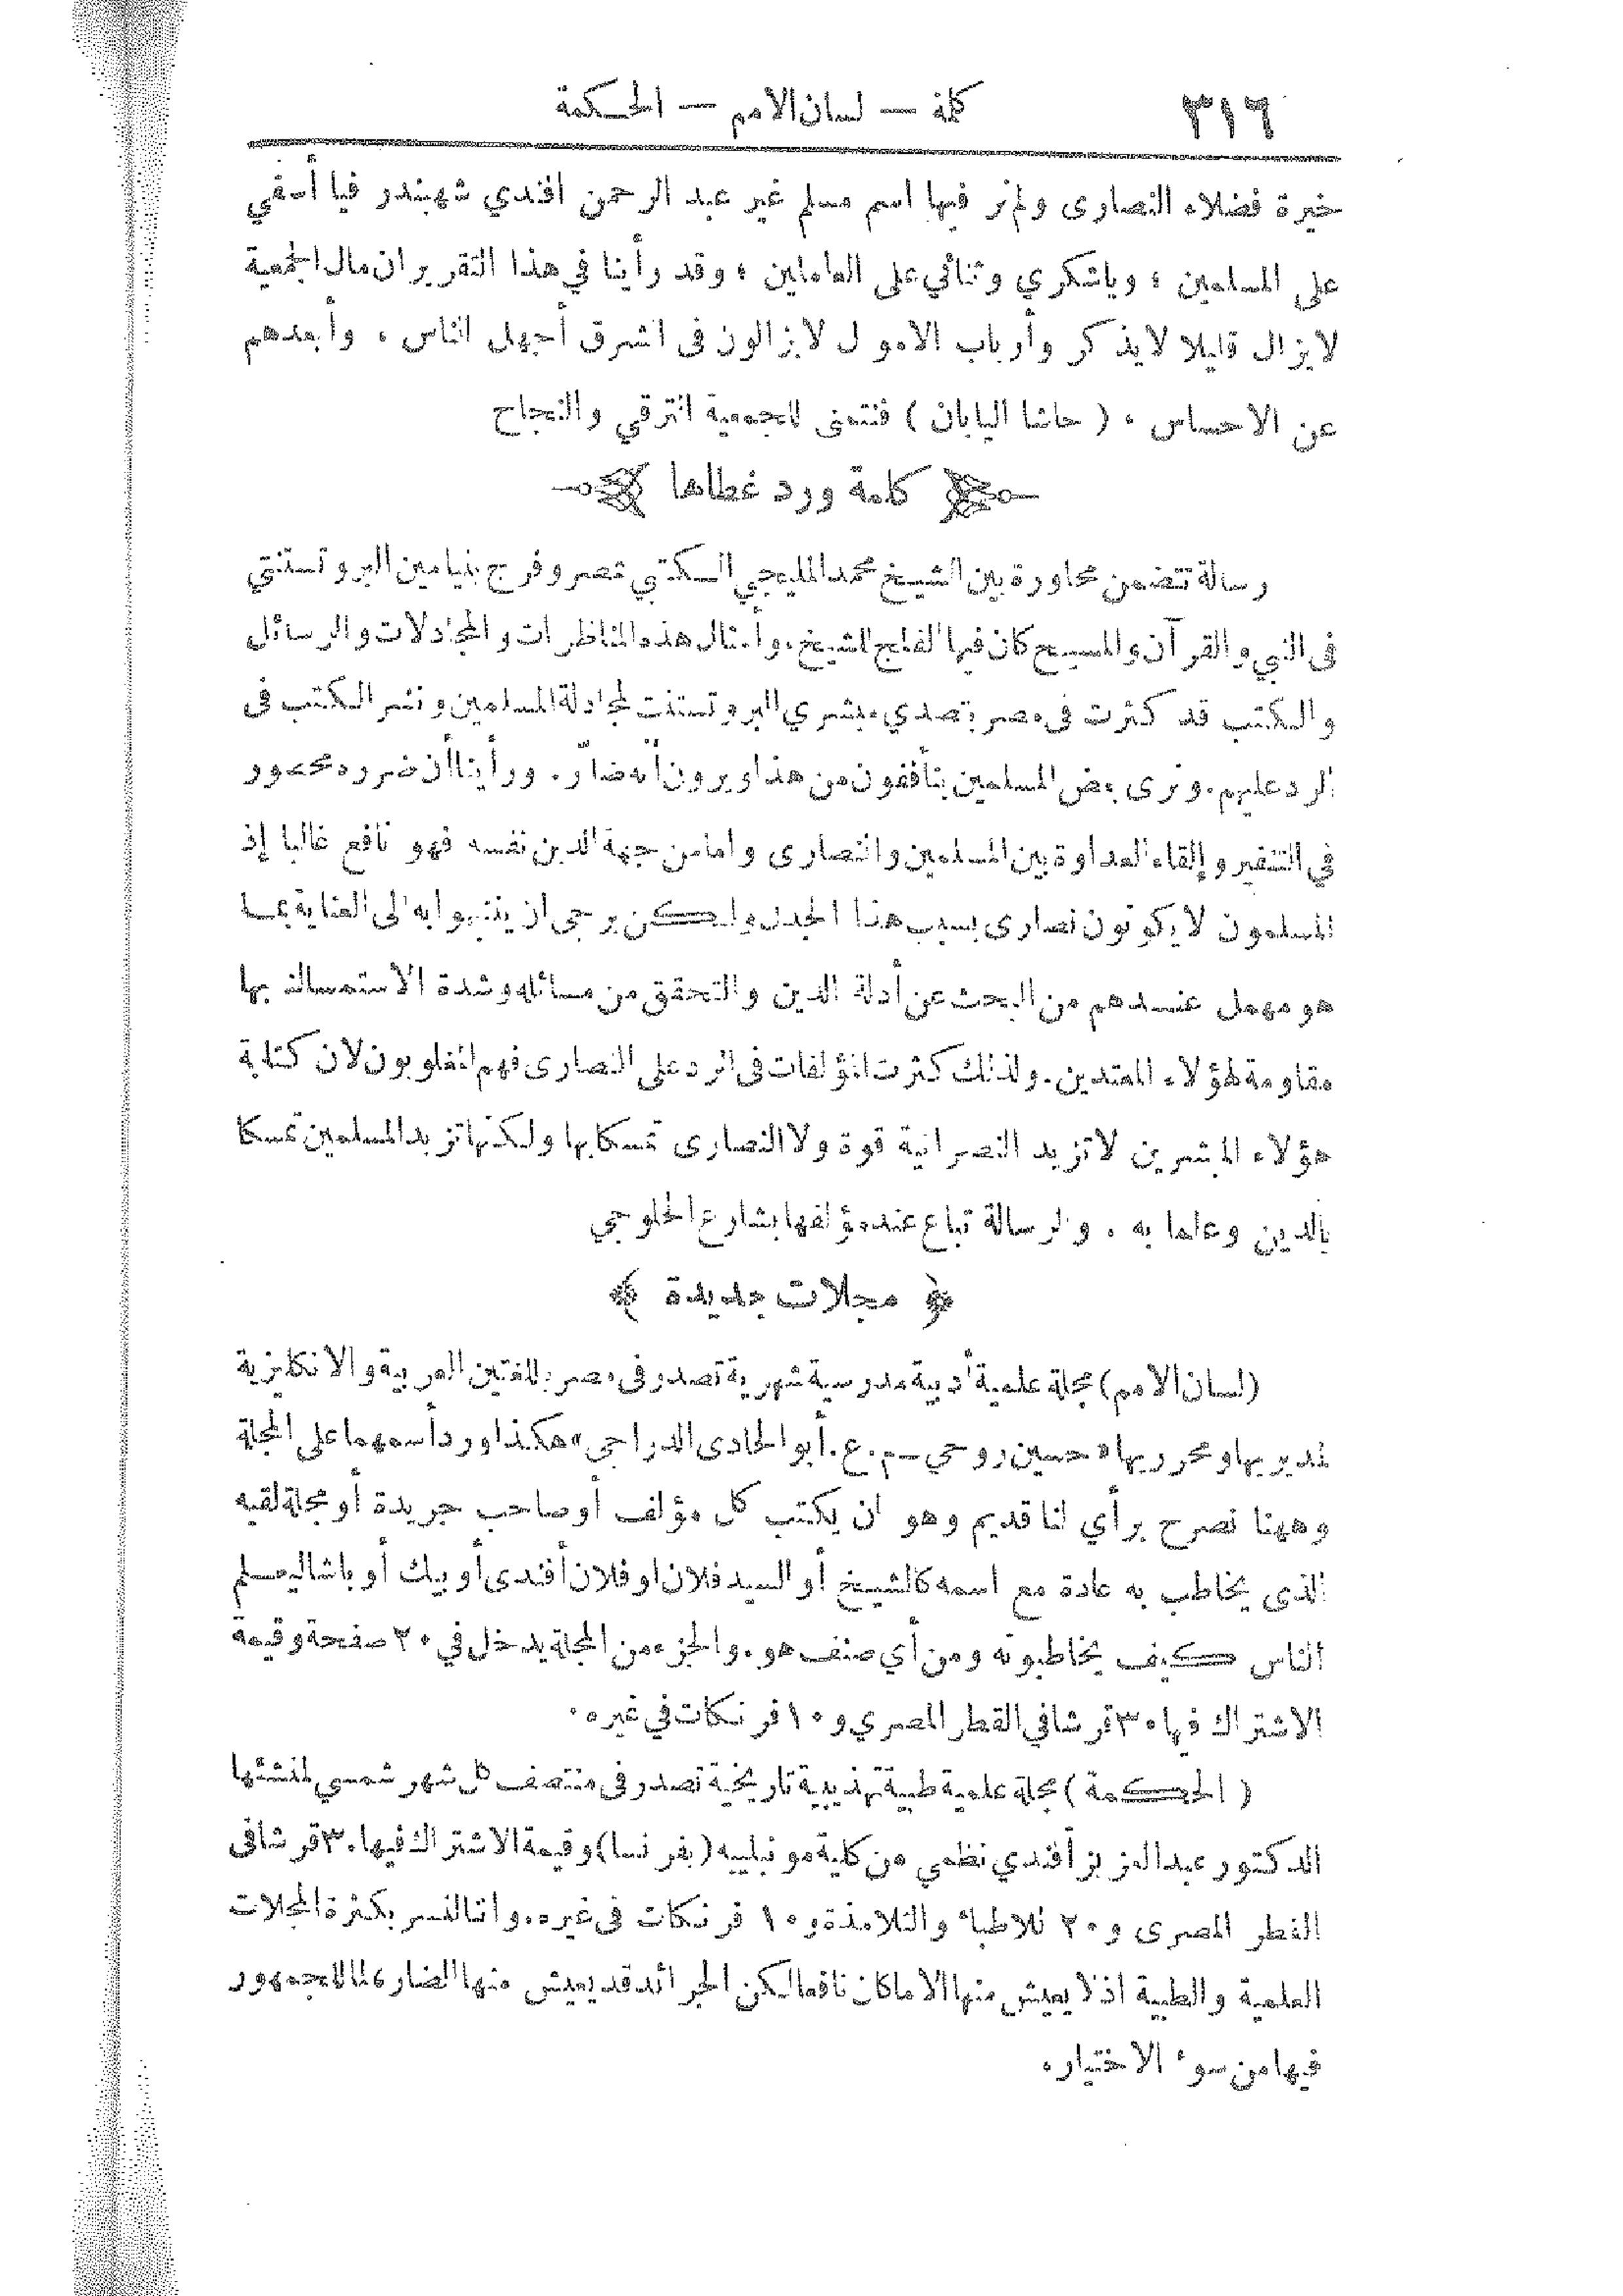 ٣١٦ كلمة — لسان الامم — الحكمة
خيرة فضلاء النصارى ولم نر فيها اسم مسلم غير عبد الرحمن افندي شهبندر فيا أسفي
على المسلمين ؛ وياشكري وثنائي على العاملين ؛ وقد رأينا في هذا التقرير ان مال الجمعية
لا يزال قليلا لا يذكر وأرباب الامول لا يزالون في الشرق أجهل الناس ، وأبعدهم
عن الاحساس ، ( حاشا اليابان ) فنتمنى للجمعية الترقي والنجاح
كلمة ورد غطاها
رسالة تتضمن محاورة بين الشيخ محمد المليجي الكتبي بمصر وفرج بنيامين البروتستنتي
في النبي والقرآن والمسيح كان فيها الفلج للشيخ . وأمثال هذه المناظرات والمجادلات والرسائل
والكتب قد كثرت في مصر بتصدي مبشري البروتستنت لمجادلة المسلمين ونشر الكتب في
الرد عليهم . ونرى بعض المسلمين يتأففون من هذا ويرون أنه ضارّ . ورأينا أن ضرره محصور
في التنفير وإلقاء العداوة بين المسلمين والنصارى واما من جهة الدين نفسه فهو نافع غالبا إذ
المسلمون لا يكونون نصارى بسبب هذا الجدل ولكن يرجى ان ينتبهوا به الى العناية بما
هو مهمل عندهم من البحث عن أدلة الدين والتحقق من مسائله وشدة الاستمساك بها
مقاومة لهؤلاء المعتدين . ولذلك كثرت المؤلفات في الرد على النصارى فهم المغلوبون لان كتابة
هؤلاء المبشرين لا تزيد النصرانية قوة ولا النصارى تمسكا بها ولكنها تزيد المسلمين تمسكا
بالدين وعلما به ، والرسالة تباع عند مؤلفها بشارع الحلوجي
﴿ مجلات جديدة ﴾
(لسان الامم) مجلة علمية أدبية مدرسية شهرية تصدر في مصر باللغتين العربية والانكليزية
لمديريها ومحرريها « حسين روحي – م . ع . أبو الحادى الدراجي » هكذا ورد أسمهما على المجلة
وههنا نصرح برأي لنا قديم وهو ان يكتب كل مؤلف أو صاحب جريدة أو مجلة لقبه
الذى يخاطب به عادة مع اسمه كالشيخ أو السيد فلان او فلان أفندى أو بيك أو باشا ليعلم
الناس كيف يخاطبونه ومن أي صنف هو . والجزء من المجلة يدخل في ٢٠ صفحة وقيمة
الاشتراك فيها ٣٠ قرشا في القطر المصري و ١٠ فرنكات في غيره .
( الحكمة ) مجلة علمية طبية تهذيبية تاريخية تصدر في منتصف كل شهر شمسي لمنشئها
الدكتور عبد العزيز أفندي نظمي من كلية مونبلييه (بفرنسا) وقيمة الاشتراك فيها ٣٠ قرشا في
القطر المصرى و ٢٠ للاطباء والتلامذة و ١٠ فرنكات في غيره . واننا لنسر بكثرة المجلات
العلمية والطبية اذ لا يعيش منها الا ما كان نافعا لكن الجرائد قد يعيش منها الضار لما للجمهور
فيها من سوء الاختيار .